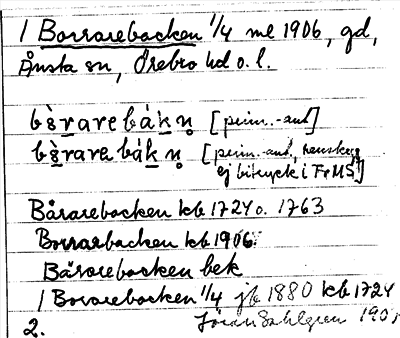 1 Borrarebacken 1/4 ml 1906, gd,
Ånsta sn, Örebro hd o. l.
bårarebackn [prim.-aud]
bårarebackn [prim.-aud,
ej bitryck i FrMS]
Bårarebacken kb 1724 o. 1763
Borrarbacken kb 1906
Bårarebacken bek
1 Borarebacken 1/4 jb 1880 kb 1724
Jöran Sahlgren
2.